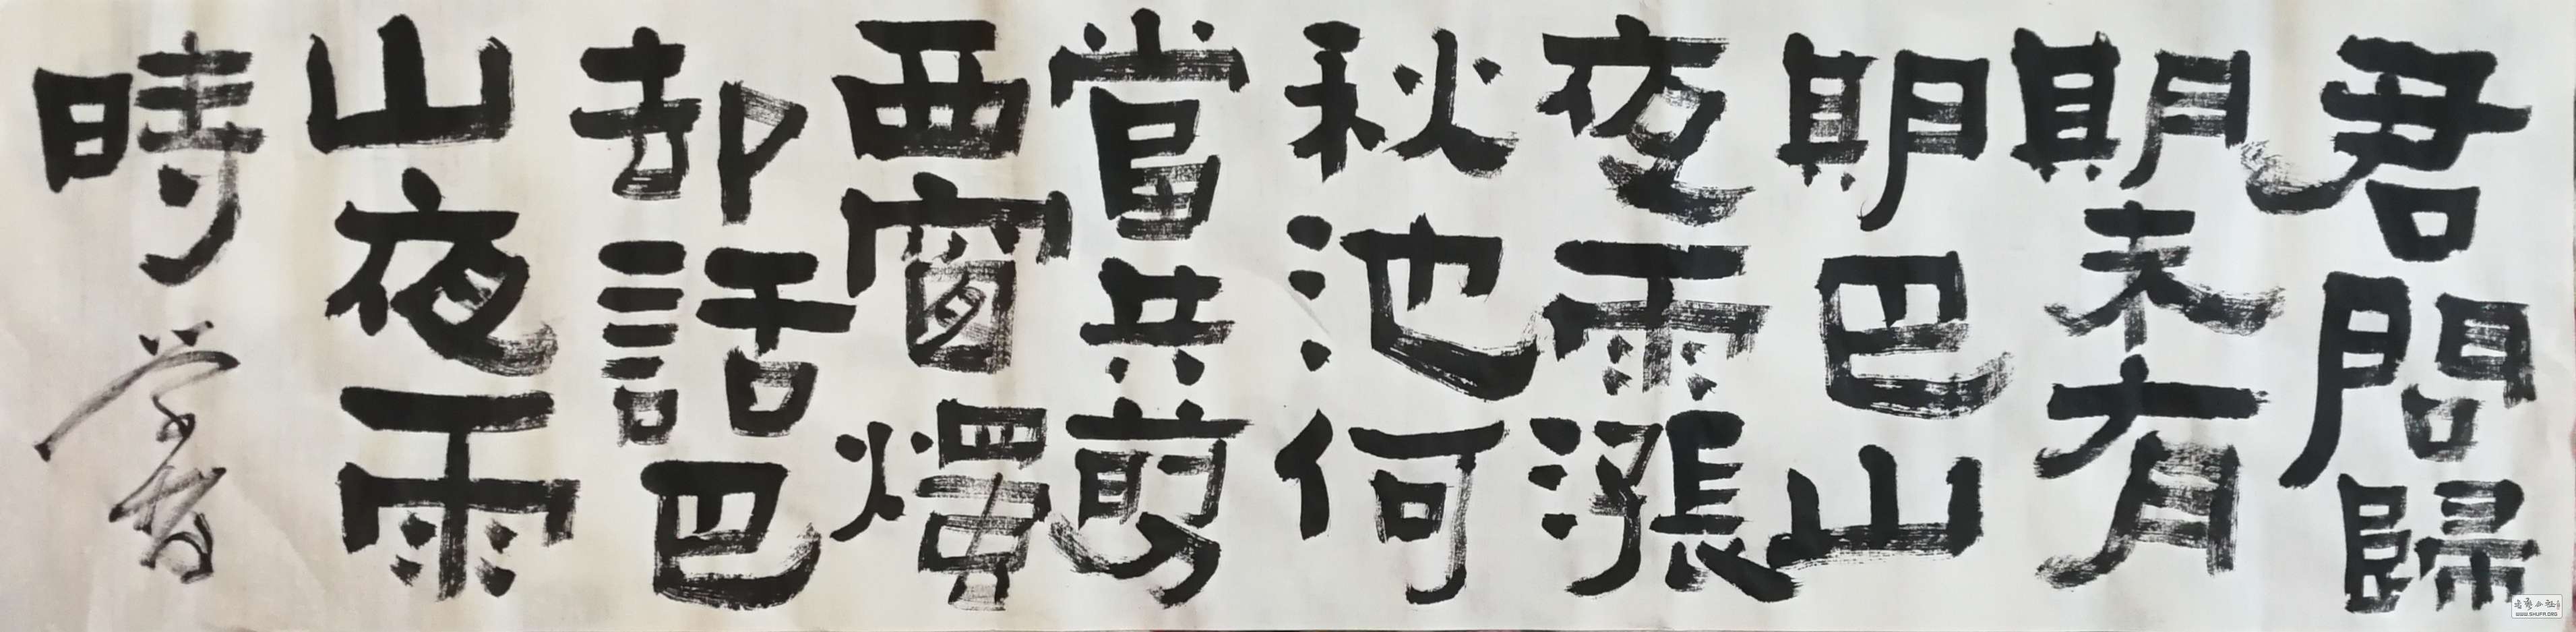 君問歸
期未有
期巴山
夜雨漲
秋池何
當共剪
西窗燭
却話巴
山夜雨
時
WWW.SHUFA.ORG